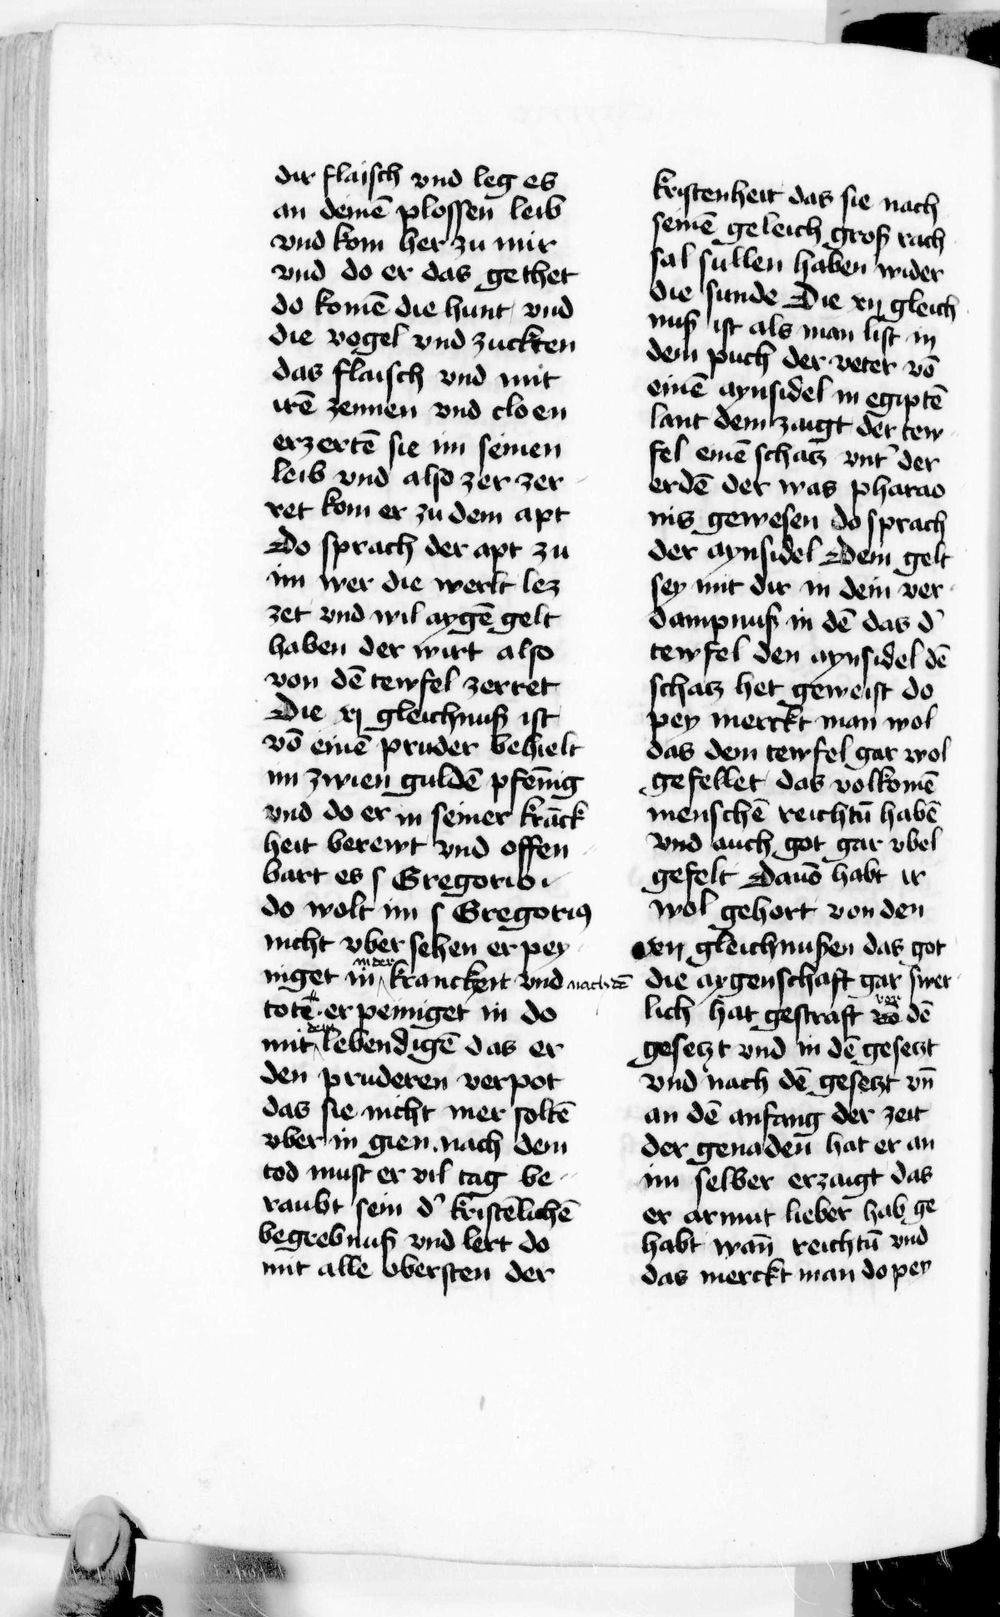 dir flaisch vnd leg es
an deinē plossen leib
vnd kom her zu mir
vnd do er das gethet
do komē die hunt vnd
die vogel vnd zuckten
das flaisch vnd mit
irē zennen vnd cloen
erzertē sie im seinen
leib vnd also zer zer
ret kom er zu dem apt
Do sprach der apt zu
im wer die werlt lez
zet vnd wil aygē gelt
haben der wirt also
von dē tewfel zerret
Die xj gleichnuß ist
vō einē pruder behielt
im zwien guldē pfēnig
vnd do er in seiner krāck
heit berewt vnd offen
bart es s Gregorio
do wolt im s Gregorius
nicht vber sehen er pey
niget in in der kranckeit vnd nach dē
totē er peiniget in do
mit den lebendigē das er
den pruderen verpot
das sie nicht mer soltē
vber in gien nach dem
tod must er vil tag be
raubt sein d' kristēlichē
begrebnuß vnd lert do
mit alle obersten der
kristenheit das sie nach
seinē geleich groß rach
sal sullen haben wider
die sunde Die xij gleich
nuß ist als man list in
dem puch der veter vō
einē aynsidel in egiptē
lant dem zaigt der tew
fel einē schatz vnt' der
erdē der was pharao
nis gewesen do sprach
der aynsidel Dein gelt
sey mit dir in dein ver
dampnuß in dē das d'
tewfel den aynsidel dē
schatz het geweist do
pey merckt man wol
das dem tewfel gar wol
gefellet das volkomē
menschē reichtū habē
vnd auch got gar vbel
gefelt Dauō habt ir
wol gehort von den
xij gleichnußen das got
die aygenschaft gar swer
lich hat gestraft vor dē
gesetzt vnd in dē gesetzt
vnd nach dē gesetzt vn̄
an dē anfang der zeit
der genaden hat er an
im selber erzaigt das
er armut lieber hab ge
habt wan̄ reichtū vnd
das merckt man do pey